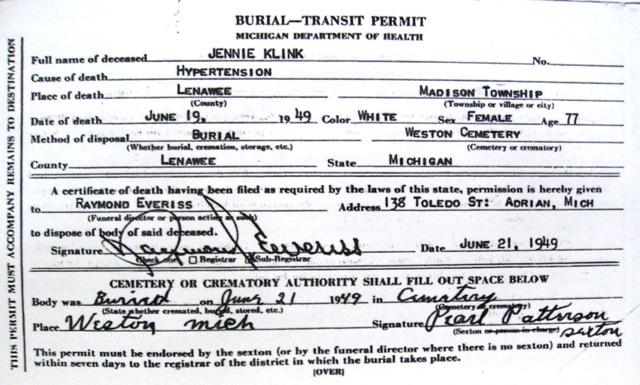 BURIAL—TRANSIT PERMIT
MICHIGAN DEPARTMENT OF HEALTH
THIS PERMIT MUST ACCOMPANY REMAINS TO DESTINATION
Full name of deceased JENNIE KLINK No.
Cause of death HYPERTENSION
Place of death LENAWEE MADISON TOWNSHIP
(County) (Township or village or city)
Date of death JUNE 19, 1949 Color WHITE Sex FEMALE Age 77
Method of disposal BURIAL WESTON CEMETERY
(Whether burial, cremation, storage, etc.) (Cemetery or crematory)
County LENAWEE State MICHIGAN
A certificate of death having been filed as required by the laws of this state, permission is hereby given
to RAYMOND EVERISS Address 138 TOLEDO ST: ADRIAN, MICH
(Funeral director or person acting as such)
to dispose of body of said deceased.
Signature Raymond Everiss Date JUNE 21, 1949
Check one Registrar Sub-Registrar
CEMETERY OR CREMATORY AUTHORITY SHALL FILL OUT SPACE BELOW
Body was Buried on June 21 1949 in Cemetery
(State whether cremated, buried, stored, etc.) (Cemetery or crematory)
Place Weston Mich Signature Pearl Patterson
(Sexton or person in charge) sexton
This permit must be endorsed by the sexton (or by the funeral director where there is no sexton) and returned
within seven days to the registrar of the district in which the burial takes place.
[OVER]